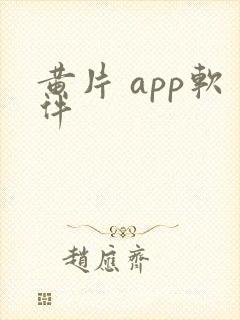 黄片 app軟
件
趙應齊